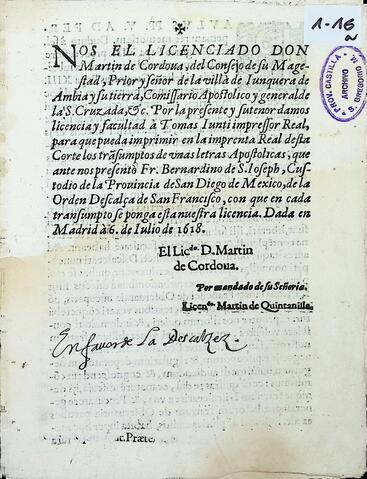 1-16
a
PROV. CASTILLA
ARCHIVO
S. GREGORIO M.
NOS EL LICENCIADO DON
Martin de Cordoua, del Consejo de su Mage-
stad, Prior y señor de la villa de Iunquera de
Ambia y su tierra, Comissario Apostolico y general de
la S. Cruzada, &c. Por la presente y su tenor damos
licencia y facultad à Tomas Iunti impressor Real,
para que pueda imprimir en la imprenta Real desta
Corte los trasumptos de vnas letras Apostolicas, que
ante nos presentò Fr. Bernardino de S. Ioseph, Cus-
todio de la Prouincia de San Diego de Mexico, de la
Orden Descalça de San Francisco, con que en cada
transumpto se ponga esta nuestra licencia. Dada en
Madrid à 6. de Iulio de 1618.
El Licdo. D. Martin
de Cordoua.
Por mandado de su Señoria.
Licendo. Martin de Quintanilla.
En fauor de la Descalzez.